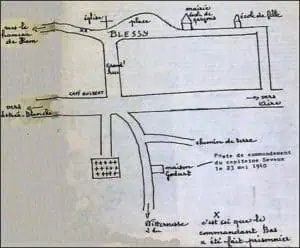 vers le
hameau
de
église
place
mairie
école de
garçons
école de fille
BLESSY
Grand'
Rue
CAFÉ GUILBERT
vers
Estrée-Blanche
vers
Aire
chemin de terre
maison
Godart
Poste de commandement
du capitaine Seveux
le 23 mai 1940
Witternesse
2 km
X
c'est ici que le
commandant Bas
a été fait prisonnier